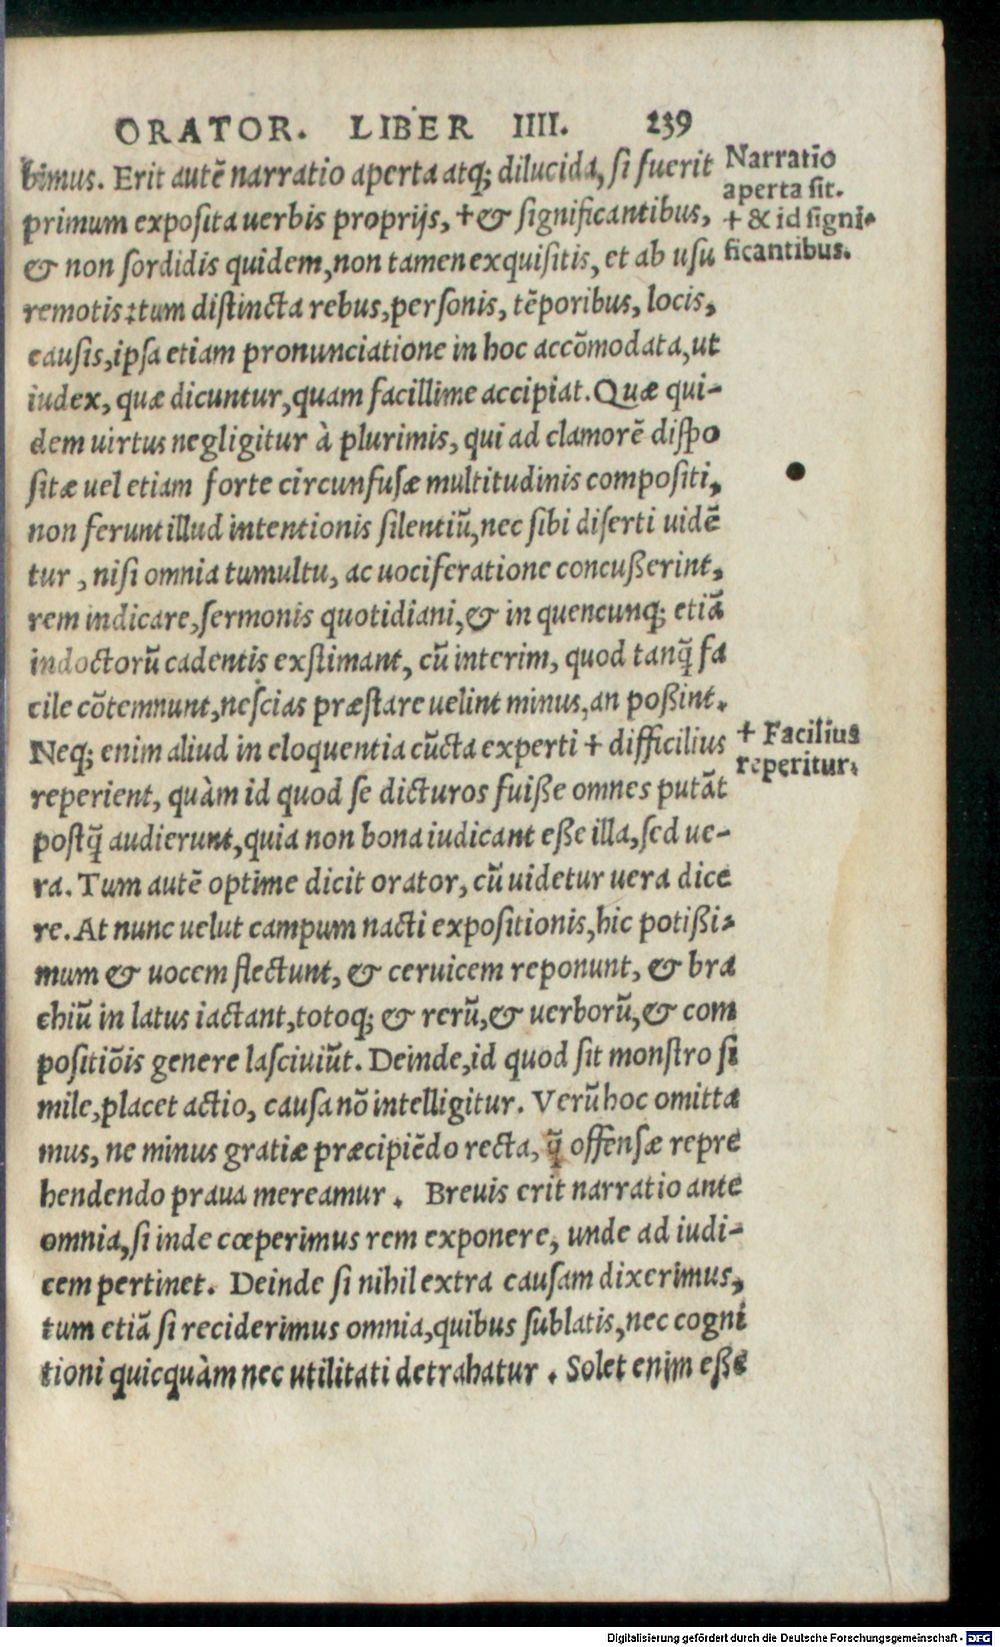 ORATOR. LIBER IIII. 239
bimus. Erit autē narratio aperta atq; dilucida, si fuerit
primum exposita uerbis proprijs, +& significantibus,
& non sordidis quidem, non tamen exquisitis, et ab usu
remotis: tum distincta rebus, personis, tēporibus, locis,
causis, ipsa etiam pronunciatione in hoc accōmodata, ut
iudex, quæ dicuntur, quam facillime accipiat. Quæ qui-
dem uirtus negligitur à plurimis, qui ad clamorē dispo
sitæ uel etiam forte circunfusæ multitudinis compositi,
non ferunt illud intentionis silentiū, nec sibi diserti uidē
tur, nisi omnia tumultu, ac uociferatione concußerint,
rem indicare, sermonis quotidiani, & in quencunq; etiā
indoctorū cadentis exstimant, cū interim, quod tanq̄ fa
cile cōtemnunt, nescias præstare uelint minus, an poßint.
Neq; enim aliud in eloquentia cūcta experti + difficilius
reperient, quàm id quod se dicturos fuiße omnes putāt
postq̄ audierunt, quia non bona iudicant eße illa, sed ue-
ra. Tum autē optime dicit orator, cū uidetur uera dice
re. At nunc uelut campum nacti expositionis, hic potißi-
mum & uocem flectunt, & ceruicem reponunt, & bra
chiū in latus iactant, totoq; & rerū, & uerborū, & com
positiōis genere lasciuiūt. Deinde, id quod sit monstro si
mile, placet actio, causa nō intelligitur. Verū hoc omitta
mus, ne minus gratiæ præcipiēdo recta, q̄ offensæ repre
hendendo praua mereamur. Breuis erit narratio ante
omnia, si inde cœperimus rem exponere, unde ad iudi-
cem pertinet. Deinde si nihil extra causam dixerimus,
tum etiā si reciderimus omnia, quibus sublatis, nec cogni
tioni quicquàm nec utilitati detrahatur. Solet enim eße
Narratio
aperta sit.
+ & id signi-
ficantibus.
+ Facilius
reperitur.
Digitalisierung gefördert durch die Deutsche Forschungsgemeinschaft - DFG